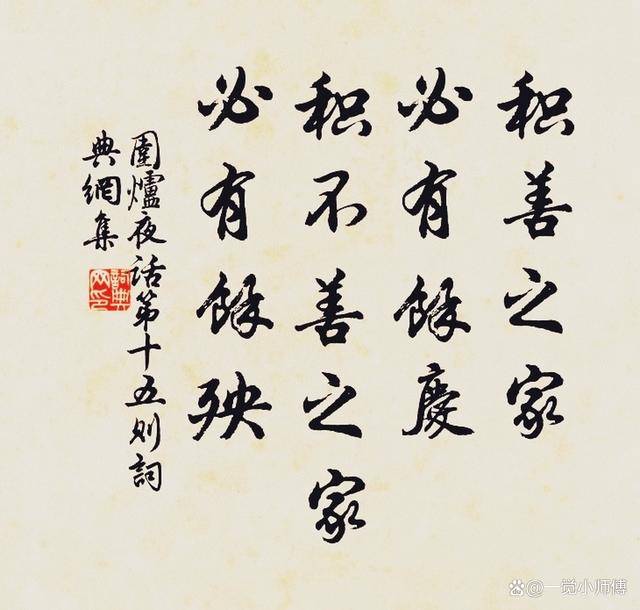 积善之家
必有餘慶
积不善之家
必有餘殃
圍爐夜话第十五则詞
典網集
詞典
网印
@一觉小师傅